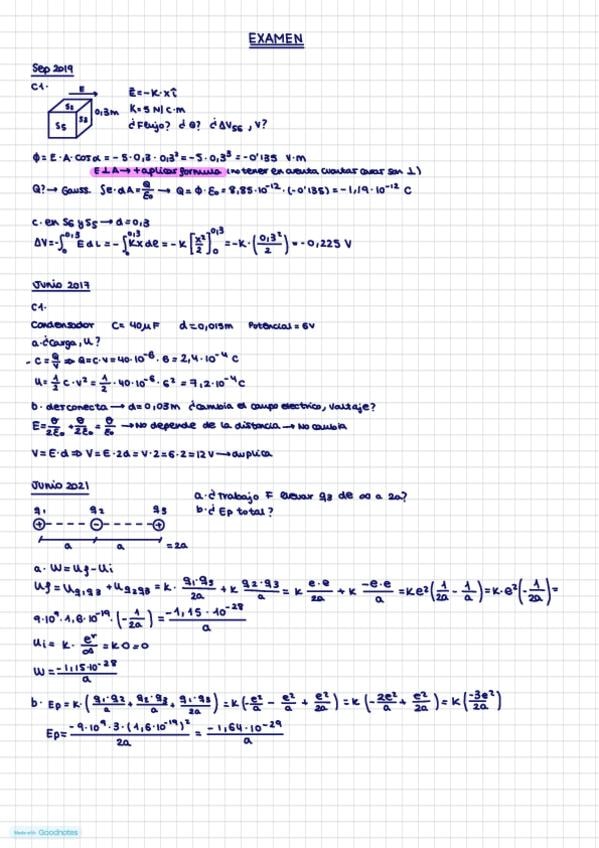 EXAMEN
Sep 2019
C1.
E
S2
S3
S5
0,3m
E=-K·xî
K=5 N/C·m
¿Flujo? ¿Q? ¿ΔV56, V?
Φ= E·A·cosα = -5·0,3·0,3²=-5·0,3³=-0'135 V·m
E⊥A→+aplicar formula (no tener en cuenta cuantas caras son ⊥)
Q?→Gauss. ∫E·dA=Q/ε0 → Q=Φ·ε0=8,85·10⁻¹²·(-0'135)=-1,19·10⁻¹² C
c. en S6 y S5→d=0,3
ΔV=-∫₀^0,3 E dL=-∫₀^0,3 Kx de=-K[x²/2]₀^0,3=-K·(0,3²/2)=-0,225 V
Junio 2017
C1.
Condensador C=40μF d=0,015m Potencial=6V
a.¿Carga, U?
-C=Q/V ⇒ Q=C·V=40·10⁻⁶·6=2,4·10⁻⁴ C
U=1/2 C·V²=1/2·40·10⁻⁶·6²=7,2·10⁻⁴C
b. desconecta→d=0,03m ¿cambia el campo electrico, voltaje?
E=σ/2ε0+σ/2ε0=σ/ε0 →No depende de la distancia→No cambia
V=E·d⇒V=E·2d=V·2=6·2=12V→duplica
Junio 2021
a.¿Trabajo F llevar q3 de ∞ a 2a?
b.¿Ep total?
q1 q2 q3
+ - +
a a =2a
a. W=Uf-Ui
Uf=Uq1q3+Uq2q3=K·q1·q3/2a+K q2·q3/a=K e·e/2a+K -e·e/a=Ke²(1/2a-1/a)=K·e²(-1/2a)=
9·10⁹·1,6·10⁻¹⁹·(-1/2a)=-1,15·10⁻²⁸/a
Ui=K·e²/∞=K0=0
W=-1,15·10⁻²⁸/a
b. Ep=K·(q1·q2/a+q2·q3/a+q1·q3/2a)=K(-e²/a-e²/a+e²/2a)=K(-2e²/a+e²/2a)=K(-3e²/2a)
Ep=-9·10⁹·3·(1,6·10⁻¹⁹)²/2a=-1,64·10⁻²⁹/a
Made with Goodnotes